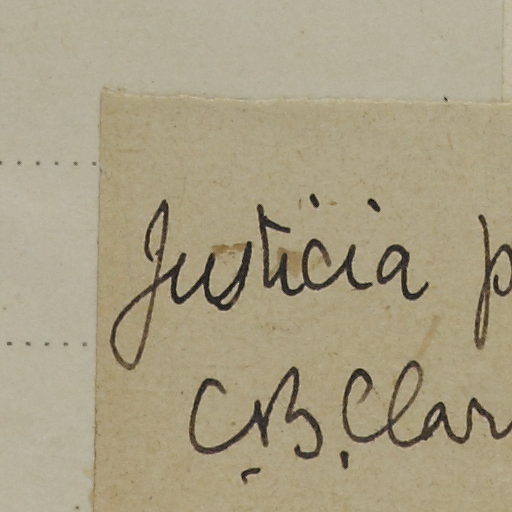 Justicia p
C.B. Clar